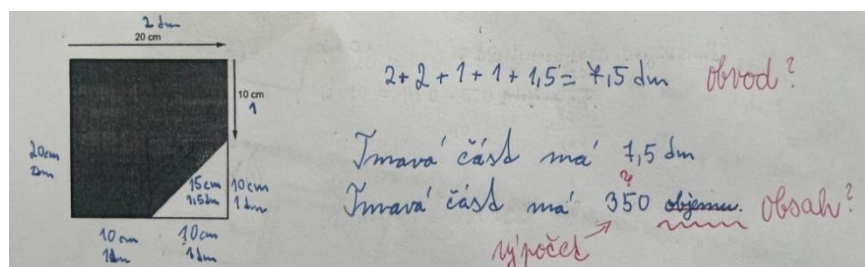 2 dm
20 cm
10 cm
1
20cm
2dm
15cm
1,5dm
10cm
1dm
10 cm
1dm
10cm
1dm
2+2+1+1+1,5=7,5 dm obvod?
Tmavá část má 7,5 dm
?
Tmavá část má 350 objemu. obsah?
výpočet